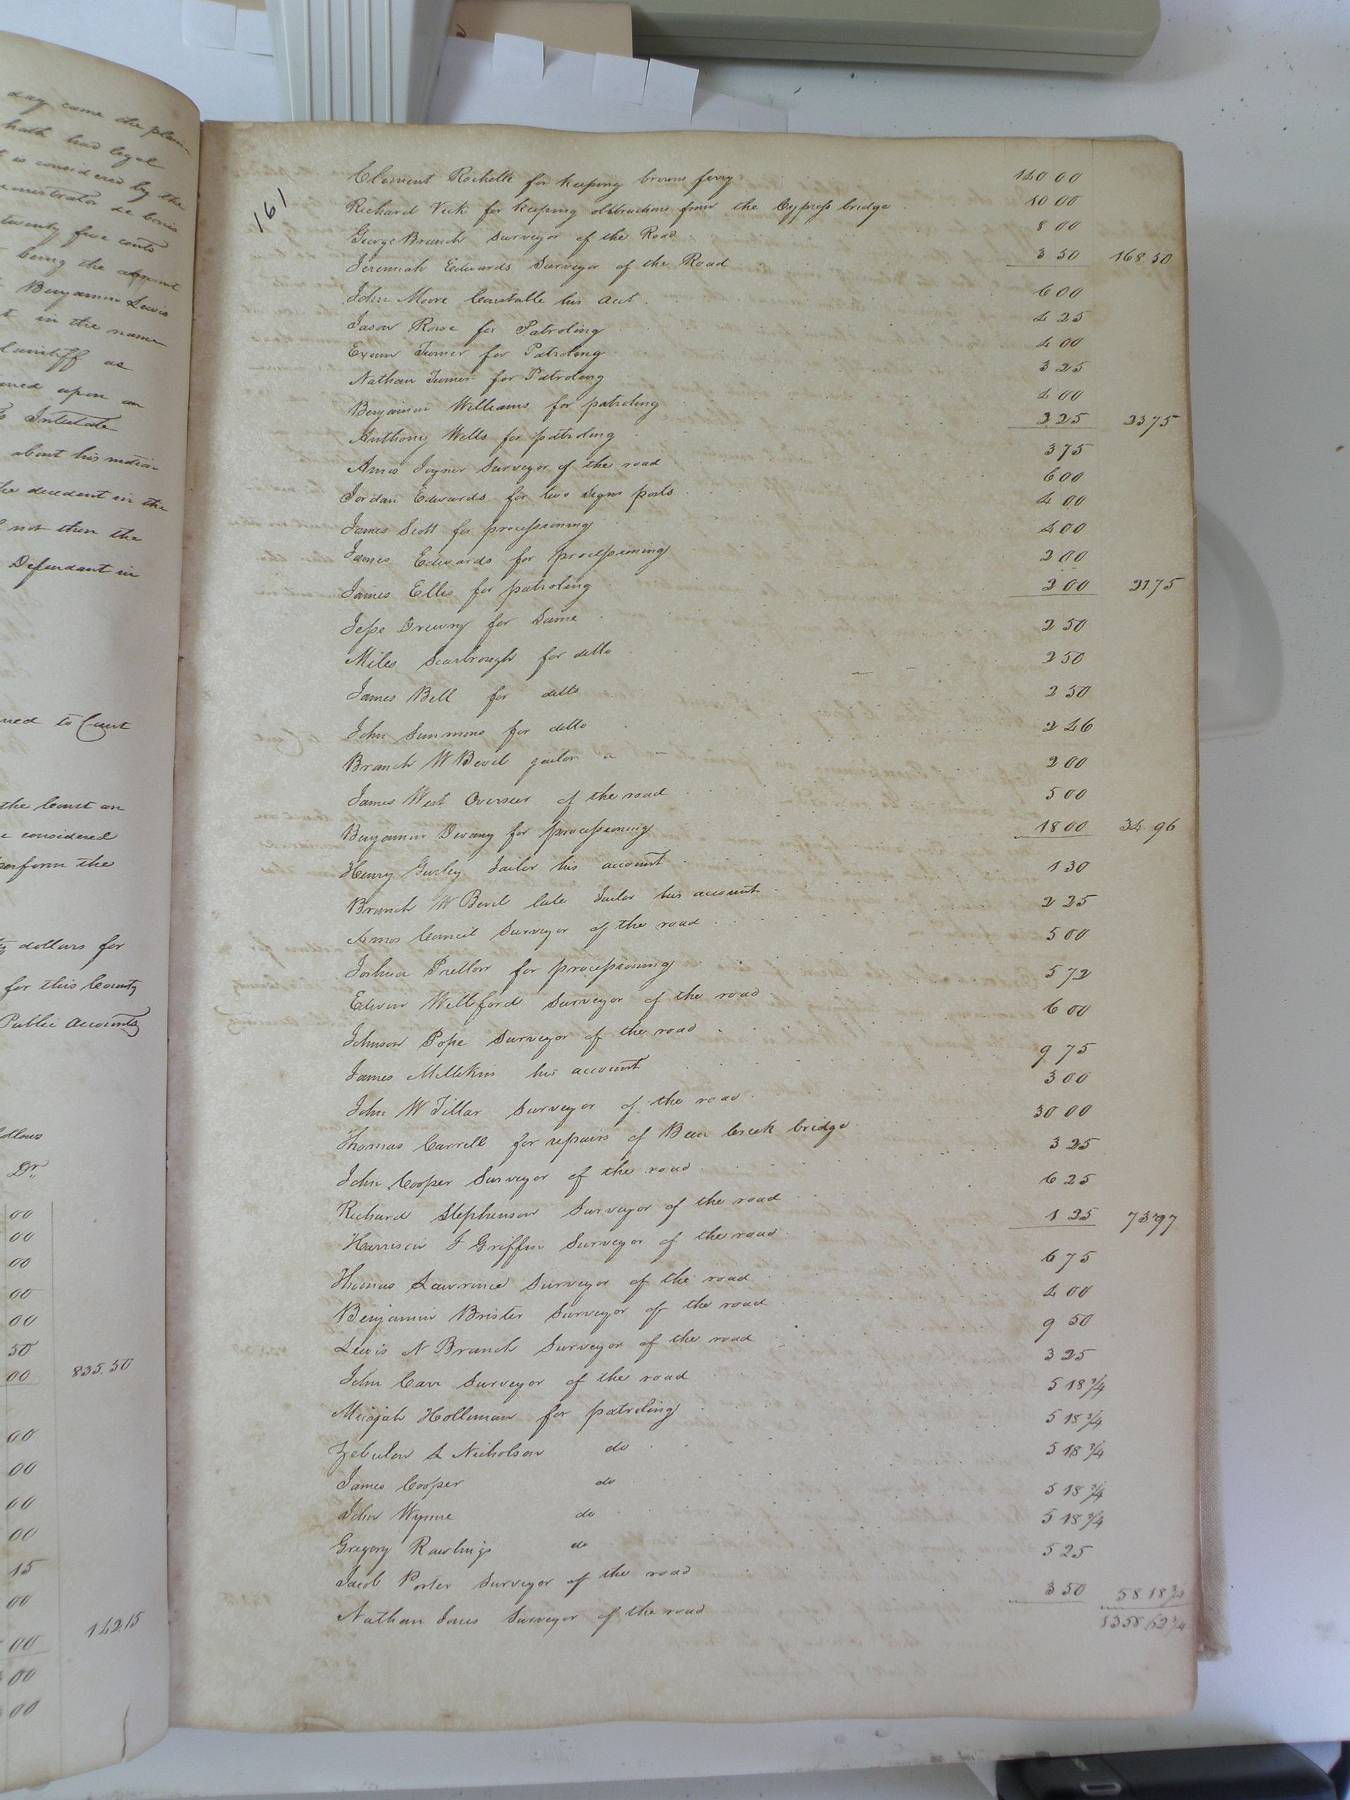 day came the plain
hath had legal
t is considered by the
ministrator de bonis
twenty five cents
being the amount
Benjamin Lewis
t in the name
laintiff as
upon an
Intestate
about his
the decedent in the
not then the
Defendant in
ned to Court
the Court an
considered
perform the
dollars for
for this County
Public accounts
ollows
Dr.
00
00
00
00
00
50
00 835.50
00
00
00
00
15
00
00 142.15
00
00
161
Clement Rochelle for keeping browns ferry 120 00
Richard Vick for keeping obstructions from the Cypress bridge 10 00
George Branch Surveyor of the Road 8 00
Jeremiah Edwards Surveyor of the Road 3 50 168.50
John Moore Constable his Act. 6 00
Jason Rowe for Patroling 4 25
Exum Turner for Patroling 4 00
Nathan Turner for Patroling 3 25
Benjamin Williams for patroling 4 00
Anthony Wells for patroling 2 25 23 75
Amos Joyner Surveyor of the road 3 75
Jordan Edwards for two Signs posts 6 00
James Scott for processioning 4 00
James Edwards for processioning 4 00
James Ellis for patroling 2 00
Jesse Drewry for Same 2 00 21 75
Miles Scarbrough for ditto 2 50
James Bell for ditto 2 50
John Simmons for ditto 2 50
Branch W Bevil jailor a 2 46
James West Overseer of the road 2 00
Benjamin Devany for processioning 5 00
Henry Gurley Jailor his account 18 00 34.96
Branch W Bevil late Jailor his account 1 30
Amos Council Surveyor of the road 2 25
Joshua Pretlow for processioning 5 00
Edwin Williford Surveyor of the road 5 72
Johnson Pope Surveyor of the road 6 00
James Millikin his account 9 75
John W Tillar Surveyor of the road 3 00
Thomas Carrell for repairs of Creek bridge 30 00
John Cooper Surveyor of the road 3 25
Richard Stephenson Surveyor of the road 6 25
Harrison J Griffin Surveyor of the road 1 25 73.97
Thomas Lawrence Surveyor of the road 6 75
Benjamin Brister Surveyor of the road 4 00
Lewis N Branch Surveyor of the road 9 50
John Carr Surveyor of the road 3 25
Micajah Holleman for patroling 5 18 3/4
Zebulon A Nicholson do 5 18 3/4
James Cooper do 5 18 3/4
John Wynne do 5 18 3/4
Gregory Rawlings do 5 18 3/4
Jacob Porter Surveyor of the road 5 25
Nathan Jones Surveyor of the road 3 50 58.18 3/4
1358.62 3/4